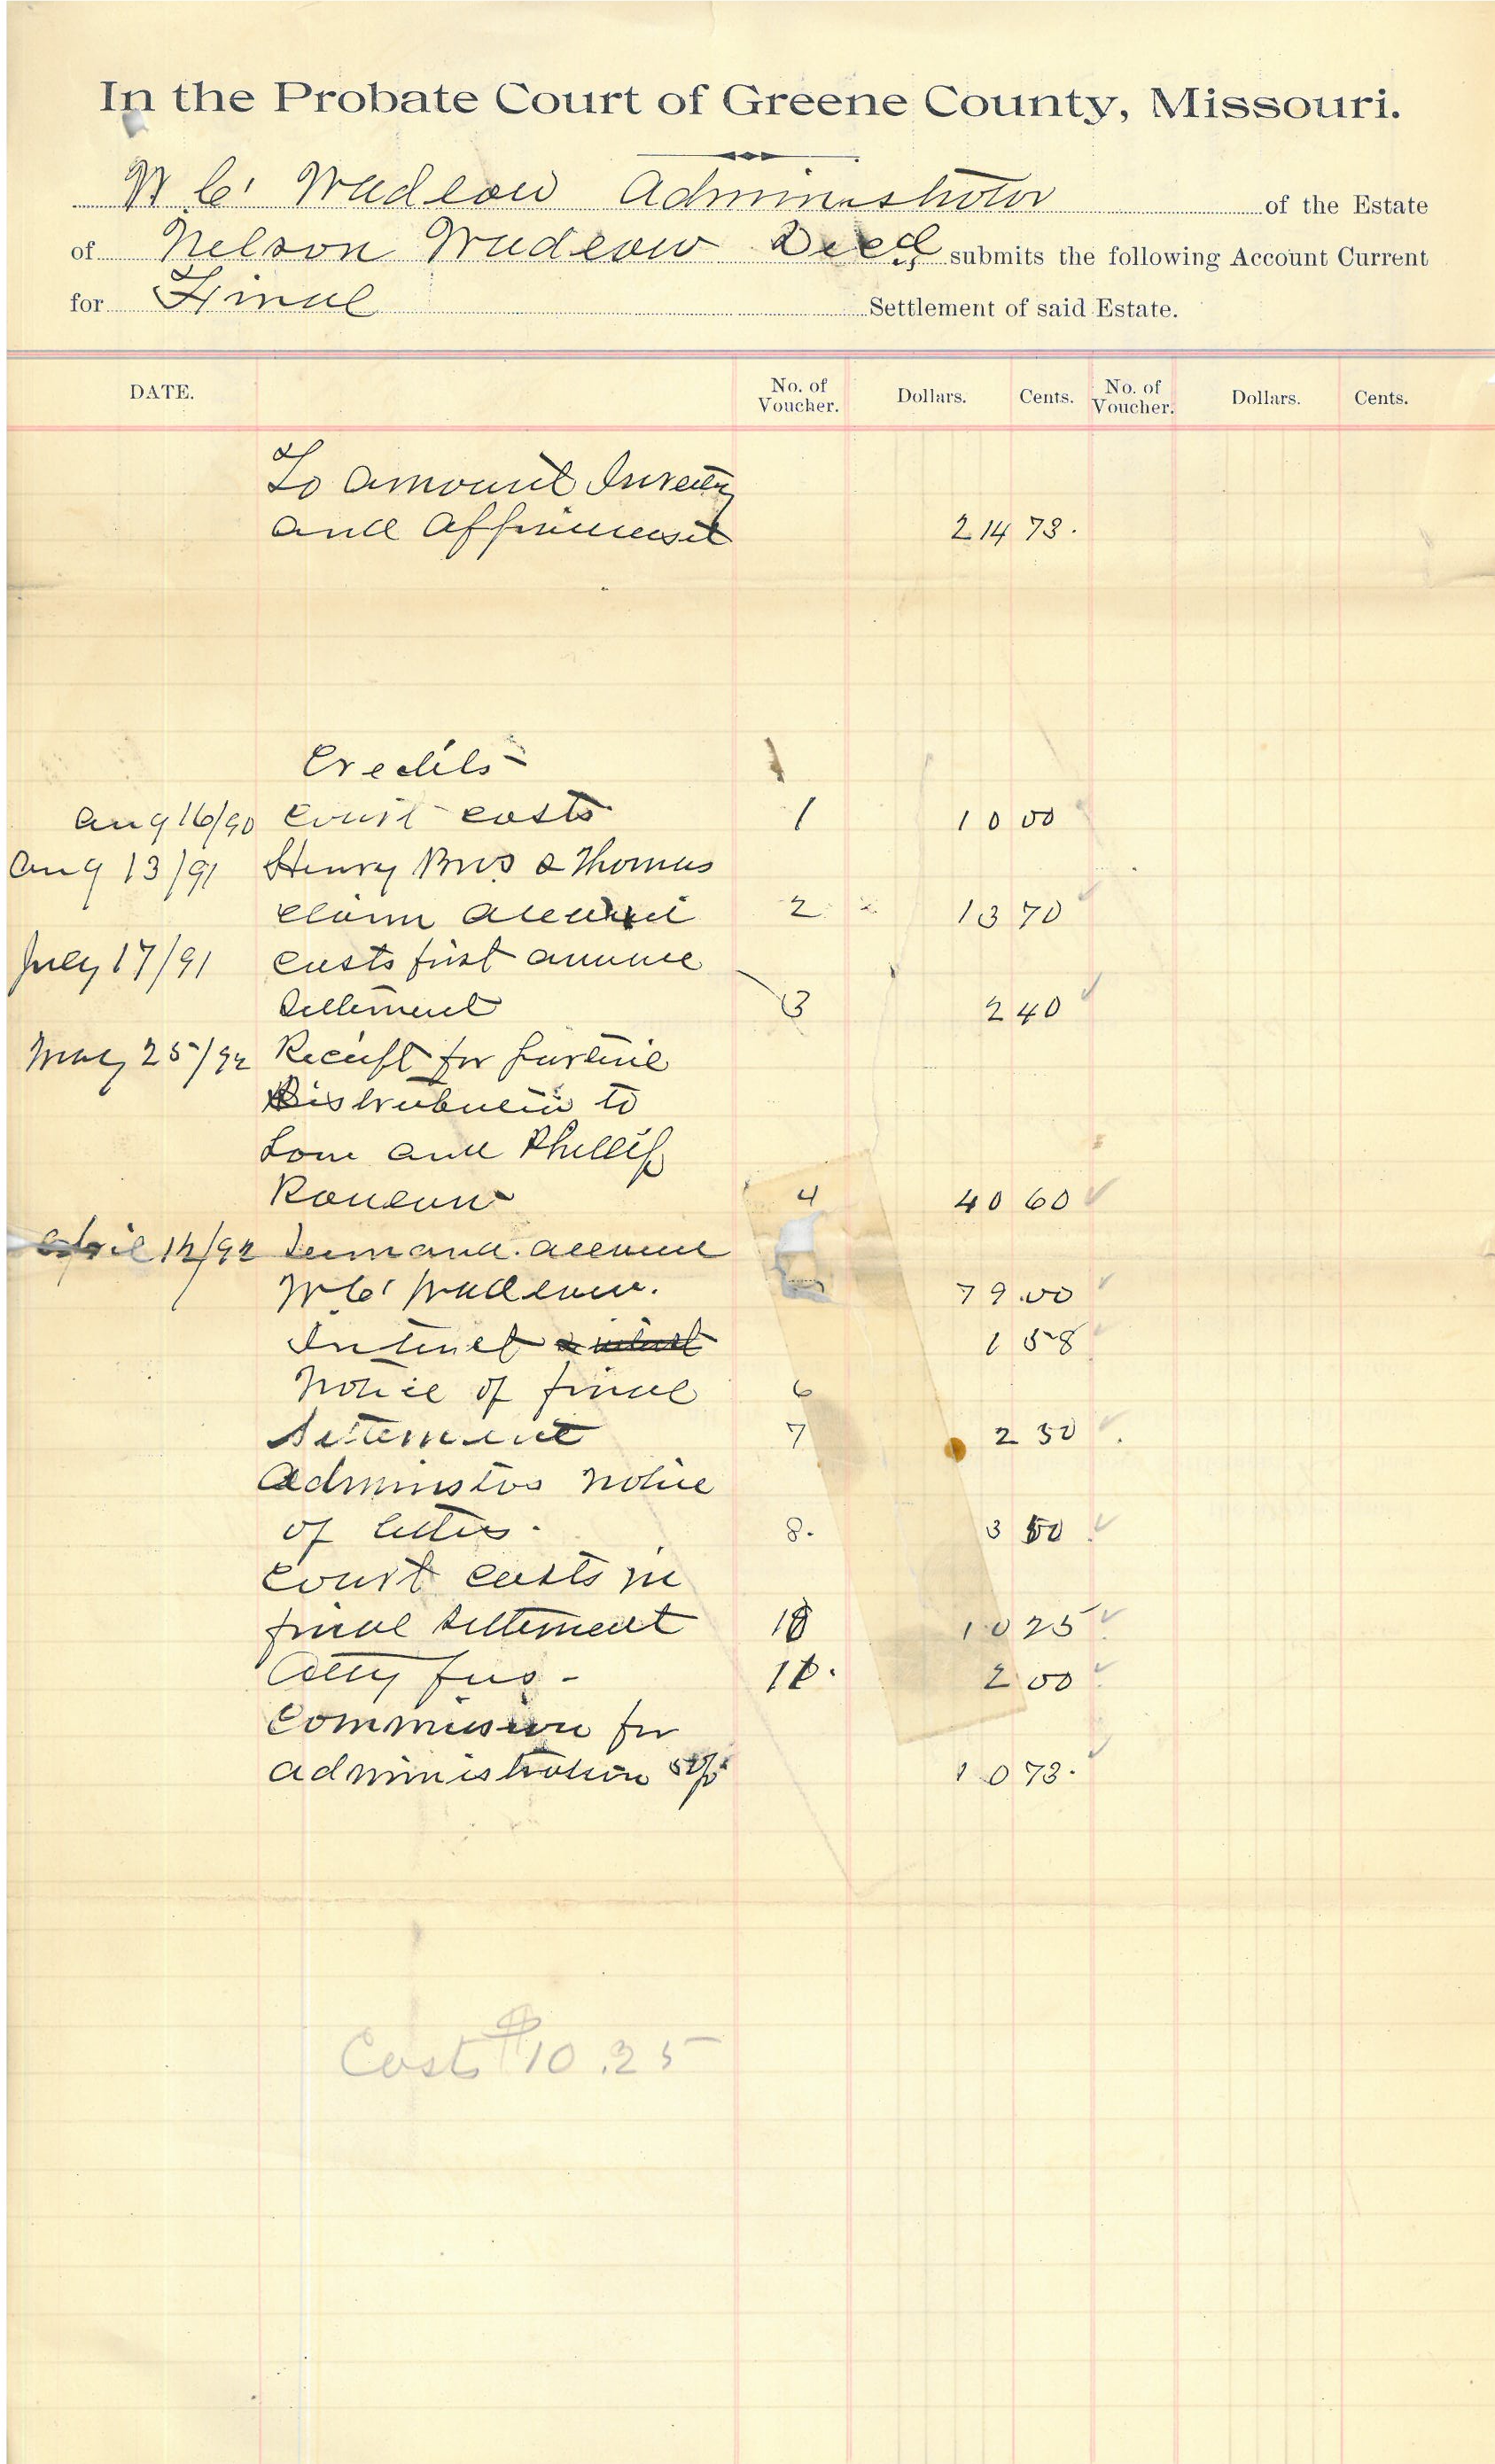 In the Probate Court of Greene County, Missouri.
W C' Wadlow Administrator of the Estate
of Nelson Wadlow Decd submits the following Account Current
for Final Settlement of said Estate.
DATE. No. of Voucher. Dollars. Cents. No. of Voucher. Dollars. Cents.
To amount
and 214 73.
Credits
Aug 16/90 Court costs 1 10 00
Aug 13/91 Henry Bros & Thomas
claim 2 13 70
July 17/91 costs first annual
settlement 3 2 40
May 25/92 Receipt for
to
and Phillip
4 40 60
April 12/92 Demand.
W C' Wadlow. 79.00
1 58
Notice of final 6
Settement 7 2 50
Notice
of letters. 8. 3 50
Court costs in
final settlement 10 25
Atty fees - 11. 2 00
Commission for
administration 5% 10 73.
Costs $10.25